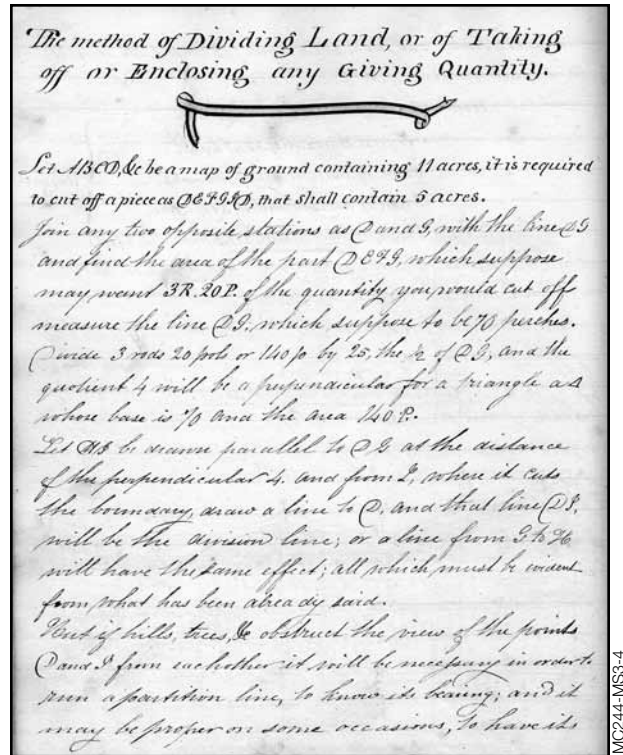 The method of Dividing Land, or of Taking
off or Enclosing any Giving Quantity.
Let ABCD, &c be a map of ground containing 11 acres, it is required
to cut off a piece as DEFGID, that shall contain 5 acres.
Join any two opposite stations as D and G, with the line DG
and find the area of the part DEFG, which suppose
may want 3R. 20P. of the quantity you would cut off
measure the line DG, which suppose to be 70 perches.
Divide 3 rods 20 pols or 140 p by 25, the ½ of DG, and the
quotient 4 will be a perpendicular for a triangle
whose base is 70 and the area 140 P.
Let HI be drawn parallel to DG at the distance
of the perpendicular 4. and from I, where it cuts
the boundary, draw a line to D. and that line DI.
will be the division line; or a line from G to H
will have the same effect; all which must be evident
from what has been already said.
But if hills, trees, &c obstruct the view of the points
D and I from each other it will be necessary in order to
run a partition line, to know its bearing; and it
may be proper on some occasions, to have its
MC244-MS3-4